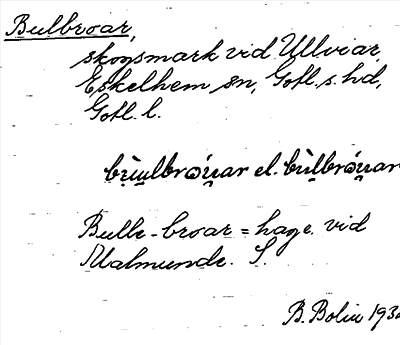 Bulbroar,
skogsmark vid Ullviar,
Eskelhem sn, Gotl. s. hd,
Gotl. l.
el.
Bulle-broar = hage vid
Malmunde. S.
B. Bolin 193